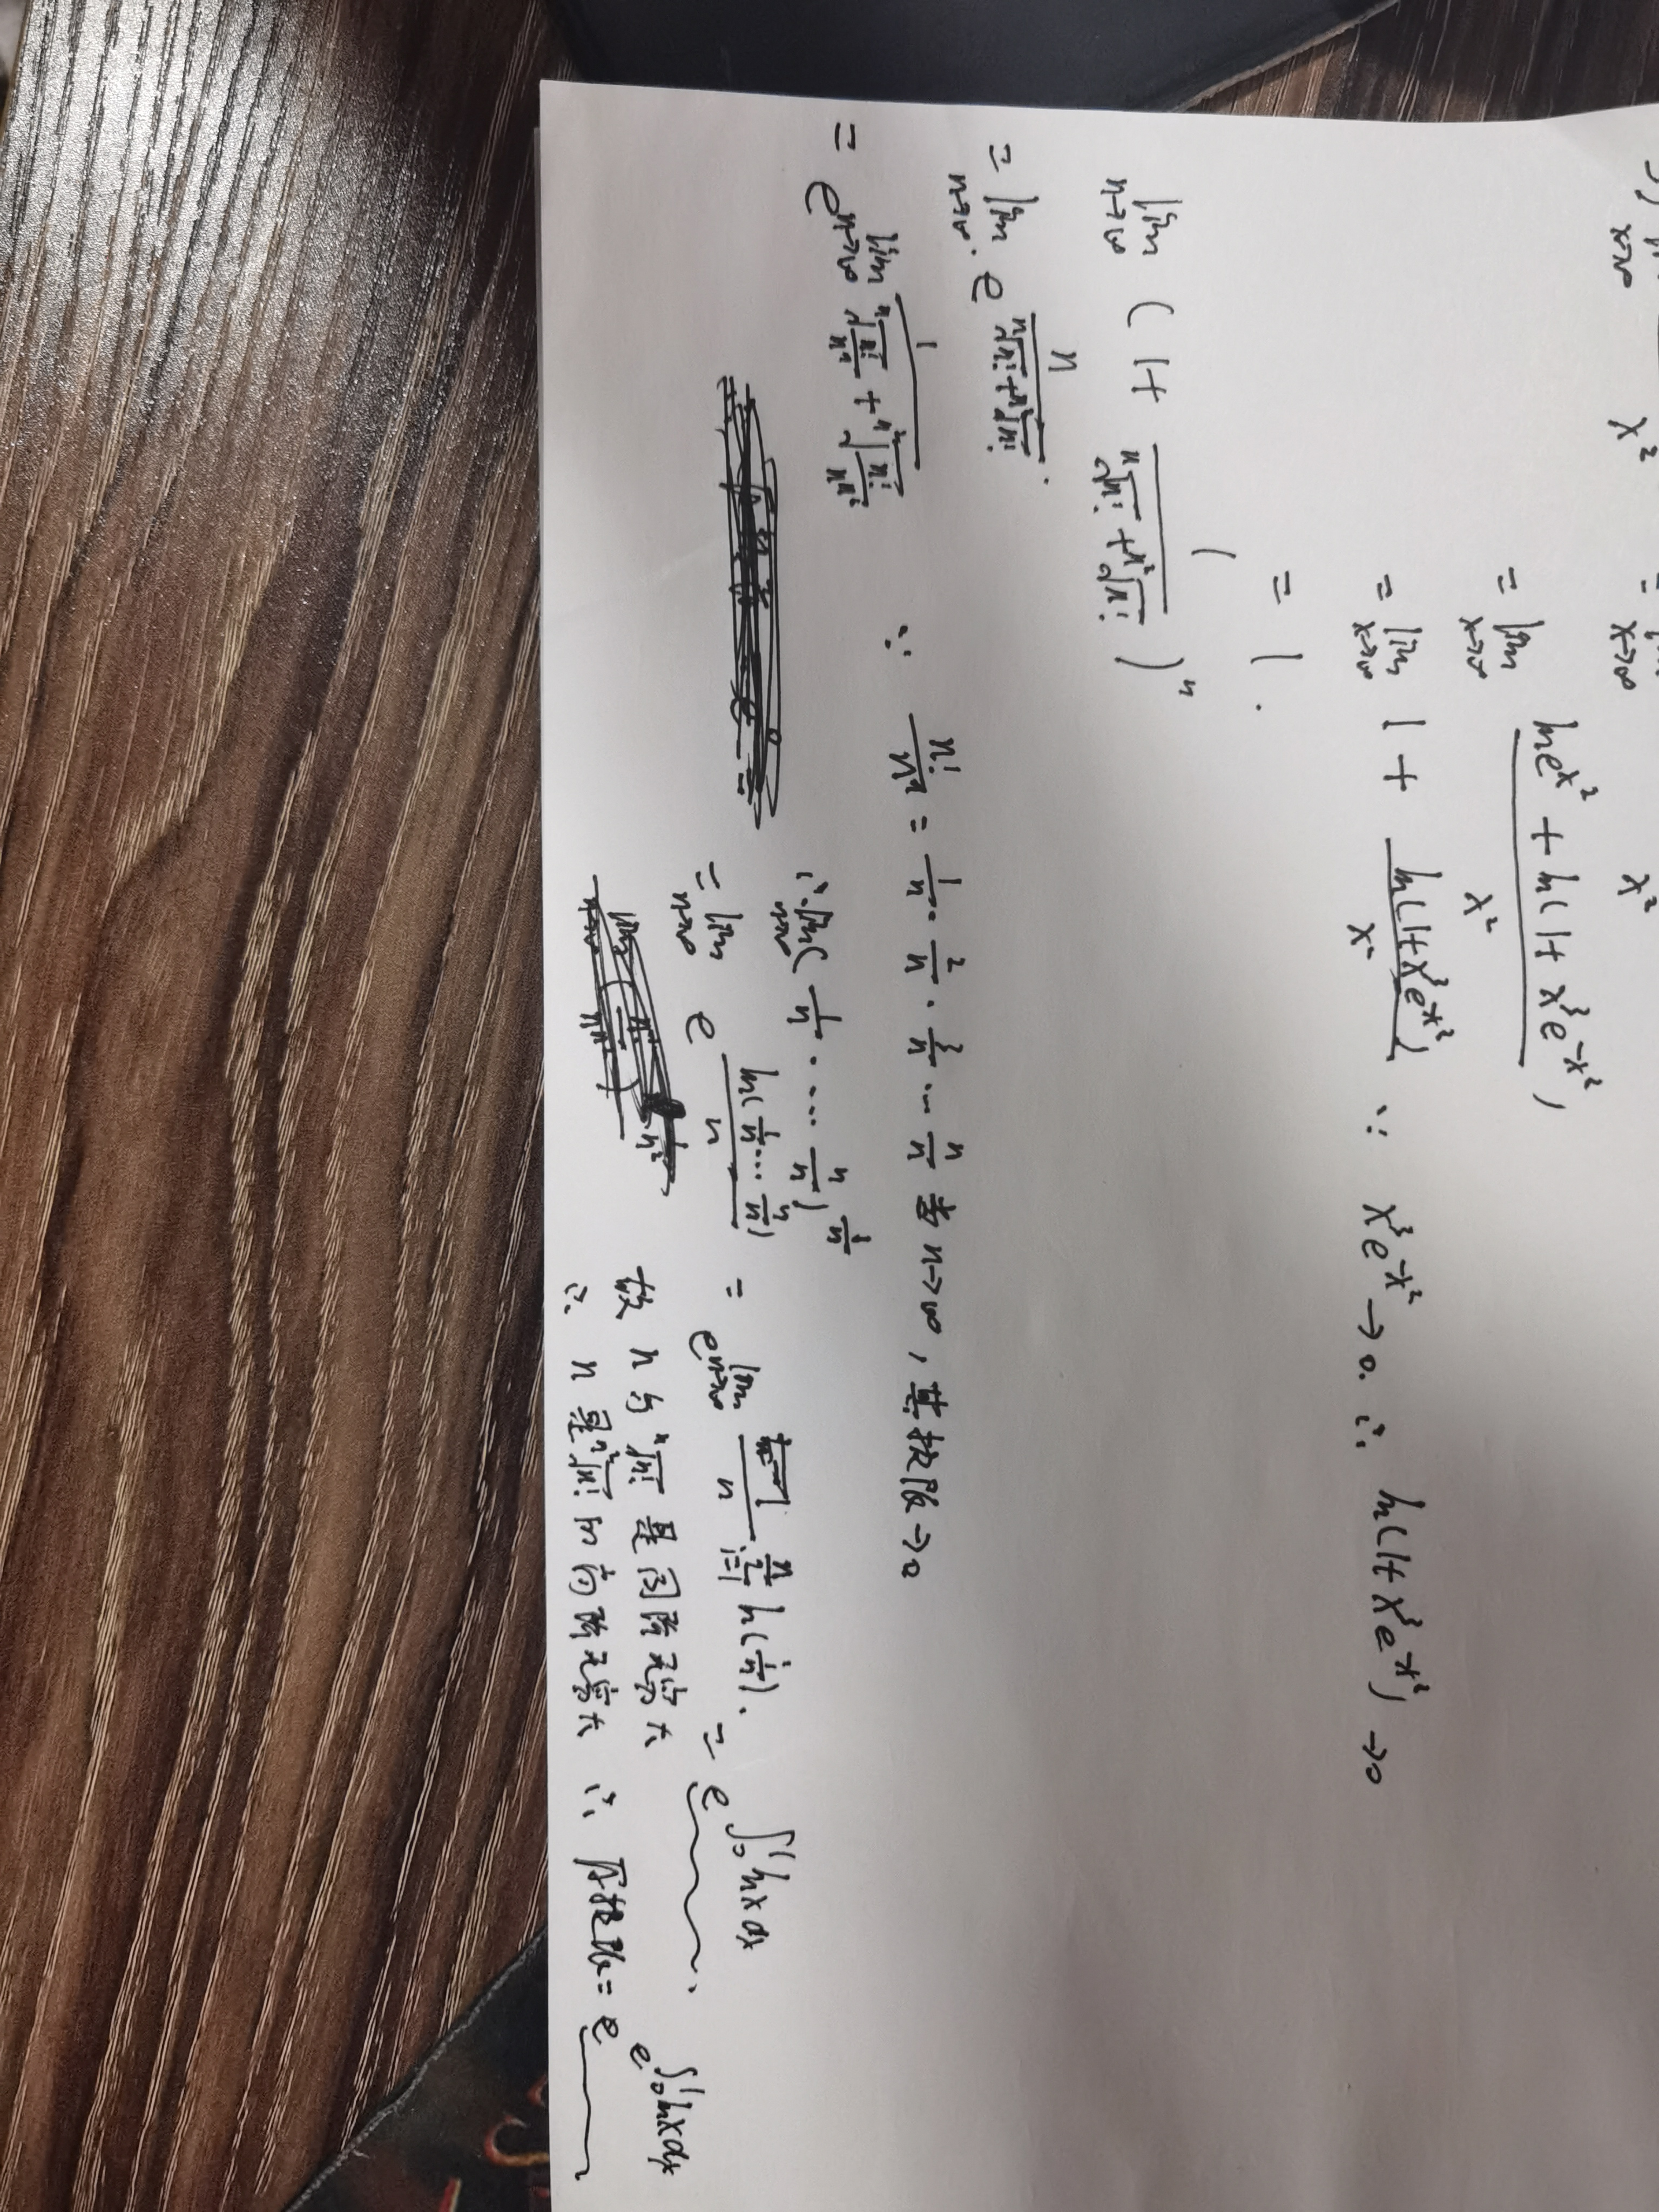 x→∞ x² = x→∞ x²
= lim_{x→∞} (ln e^{x²} + ln(1+x³e^{-x²}))/x²
= lim_{x→∞} 1 + ln(1+x³e^{-x²})/x² ∵ x³e^{-x²}→0. ∴ ln(1+x³e^{-x²})→0
= 1.
lim_{n→∞} (1 + 1/(ⁿ√n! + ^{n²}√n!))ⁿ
= lim_{n→∞} e^{n/(ⁿ√n! + ^{n²}√n!)}.
= e^{lim_{n→∞} 1/(ⁿ√(n!/nⁿ) + ^{n²}√(n!/n^{n²}))}
∵ n!/nⁿ = 1/n · 2/n · 3/n ... n/n 当 n→∞, 其极限→0
∴ lim_{n→∞} (1/n · .... n/n)^{1/n}
= lim_{n→∞} e^{ln(1/n ... n/n)/n} = e^{lim_{n→∞} 1/n Σ_{i=1}^{n} ln(i/n)}. = e^{∫₀¹ lnx dx}.
故 n 与 ⁿ√n! 是同阶无穷大
∴ n 是 ^{n²}√n! 的高阶无穷大 ∴ 原极限 = e^{e^{∫₀¹ lnx dx}}